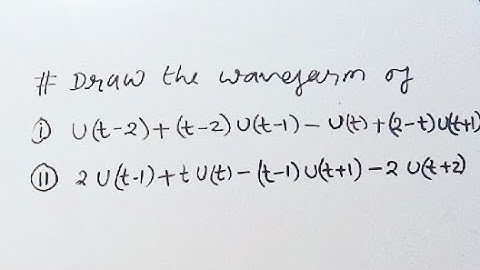 # Draw the waveform of
(i) U(t-2)+(t-2)U(t-1)-U(t)+(2-t)U(t+1)
(II) 2U(t-1)+tU(t)-(t-1)U(t+1)-2U(t+2)